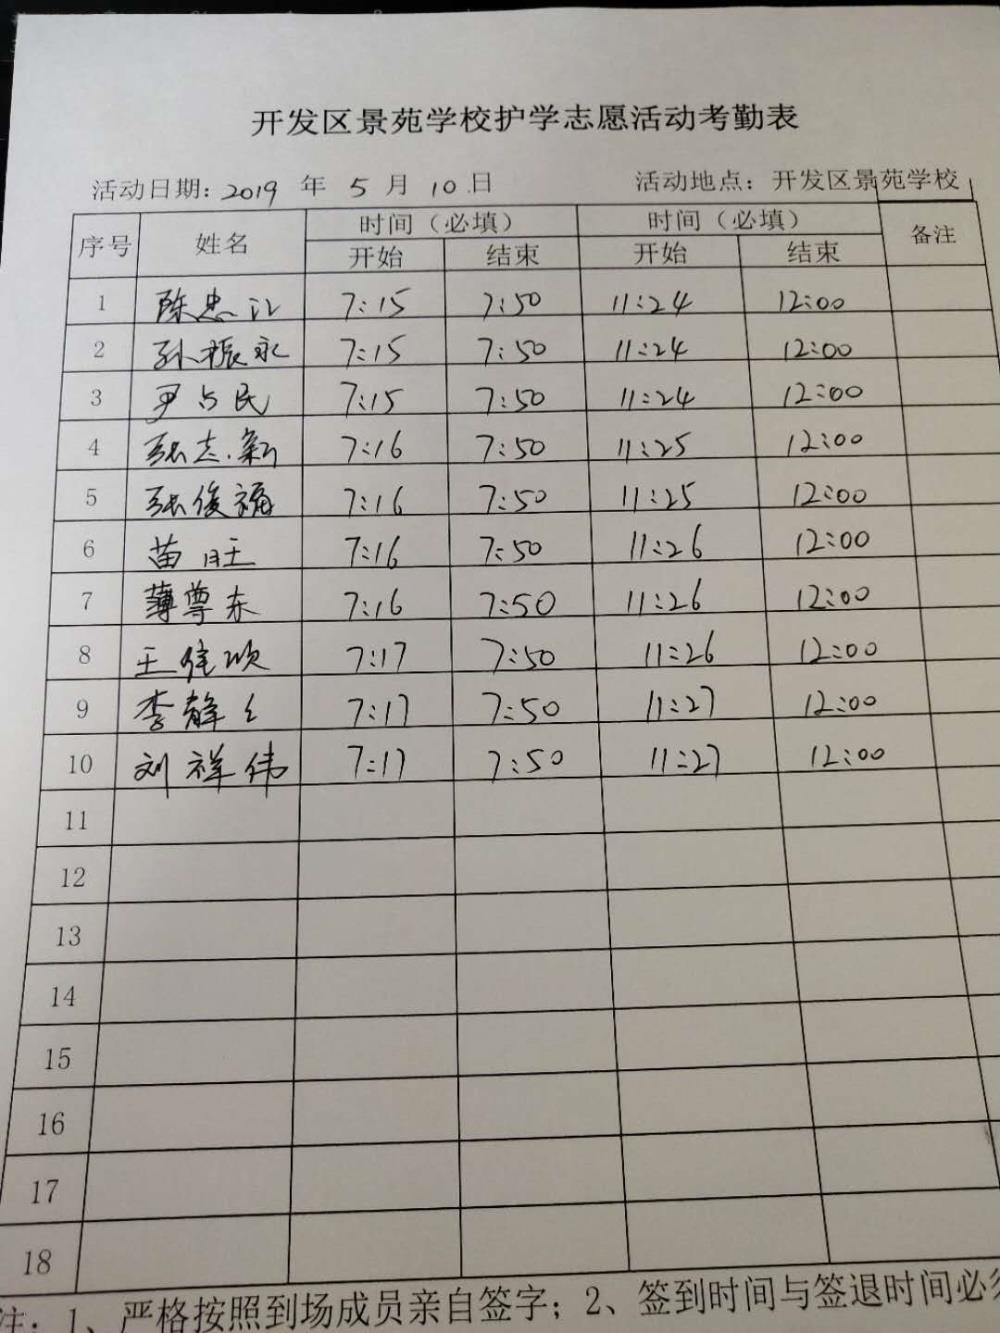 开发区景苑学校护学志愿活动考勤表
活动日期: 2019 年 5 月 10 日 活动地点: 开发区景苑学校
序号 姓名 时间（必填） 时间（必填） 备注
开始 结束 开始 结束
1 陈忠江 7:15 7:50 11:24 12:00
2 孙振永 7:15 7:50 11:24 12:00
3 尹占民 7:15 7:50 11:24 12:00
4 张志新 7:16 7:50 11:25 12:00
5 张俊福 7:16 7:50 11:25 12:00
6 苗旺 7:16 7:50 11:26 12:00
7 薄尊东 7:16 7:50 11:26 12:00
8 王伟 7:17 7:50 11:26 12:00
9 李静 7:17 7:50 11:27 12:00
10 刘祥伟 7:17 7:50 11:27 12:00
11
12
13
14
15
16
17
18
注: 1、严格按照到场成员亲自签字；2、签到时间与签退时间必须